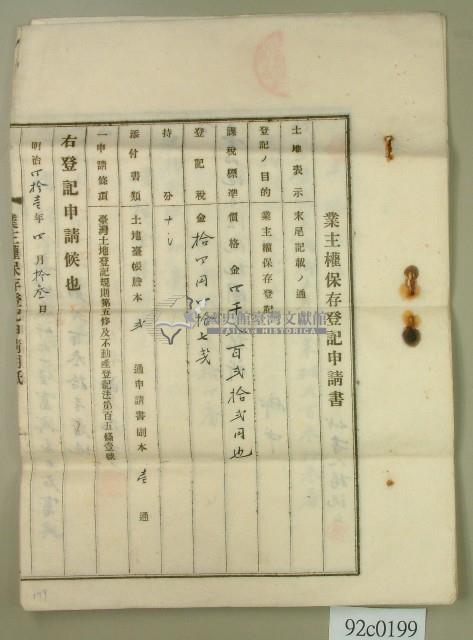 業主權保存登記申請書
土地表示 末尾記載ノ通
登記ノ目的 業主權保存登記
課税標準 價格金四千 百貳拾貳円也
登記税 金拾四円 拾七戔
持分
添付書類 土地臺帳謄本 貳 通 申請書副本 壱 通
一申請條項 臺灣土地登記規則第五條及不動産登記法第百五條壹號
右登記申請候也
明治四拾壱年四月拾叁日
業主權保存登記申請用紙
國史館臺灣文獻館
TAIWAN HISTORICA
179
92c0199